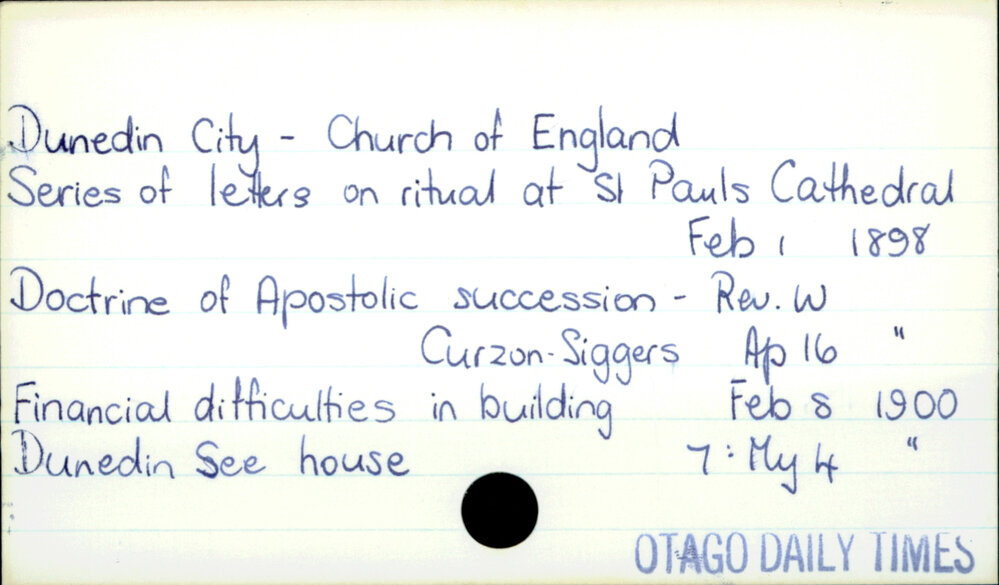 Dunedin City - Church of England
Series of letters on ritual at St Pauls Cathedral
Feb 1 1898
Doctrine of Apostolic succession - Rev. W
Curzon-Siggers Ap 16 "
Financial difficulties in building Feb 8 1900
Dunedin See house 7: My 4 "
OTAGO DAILY TIMES